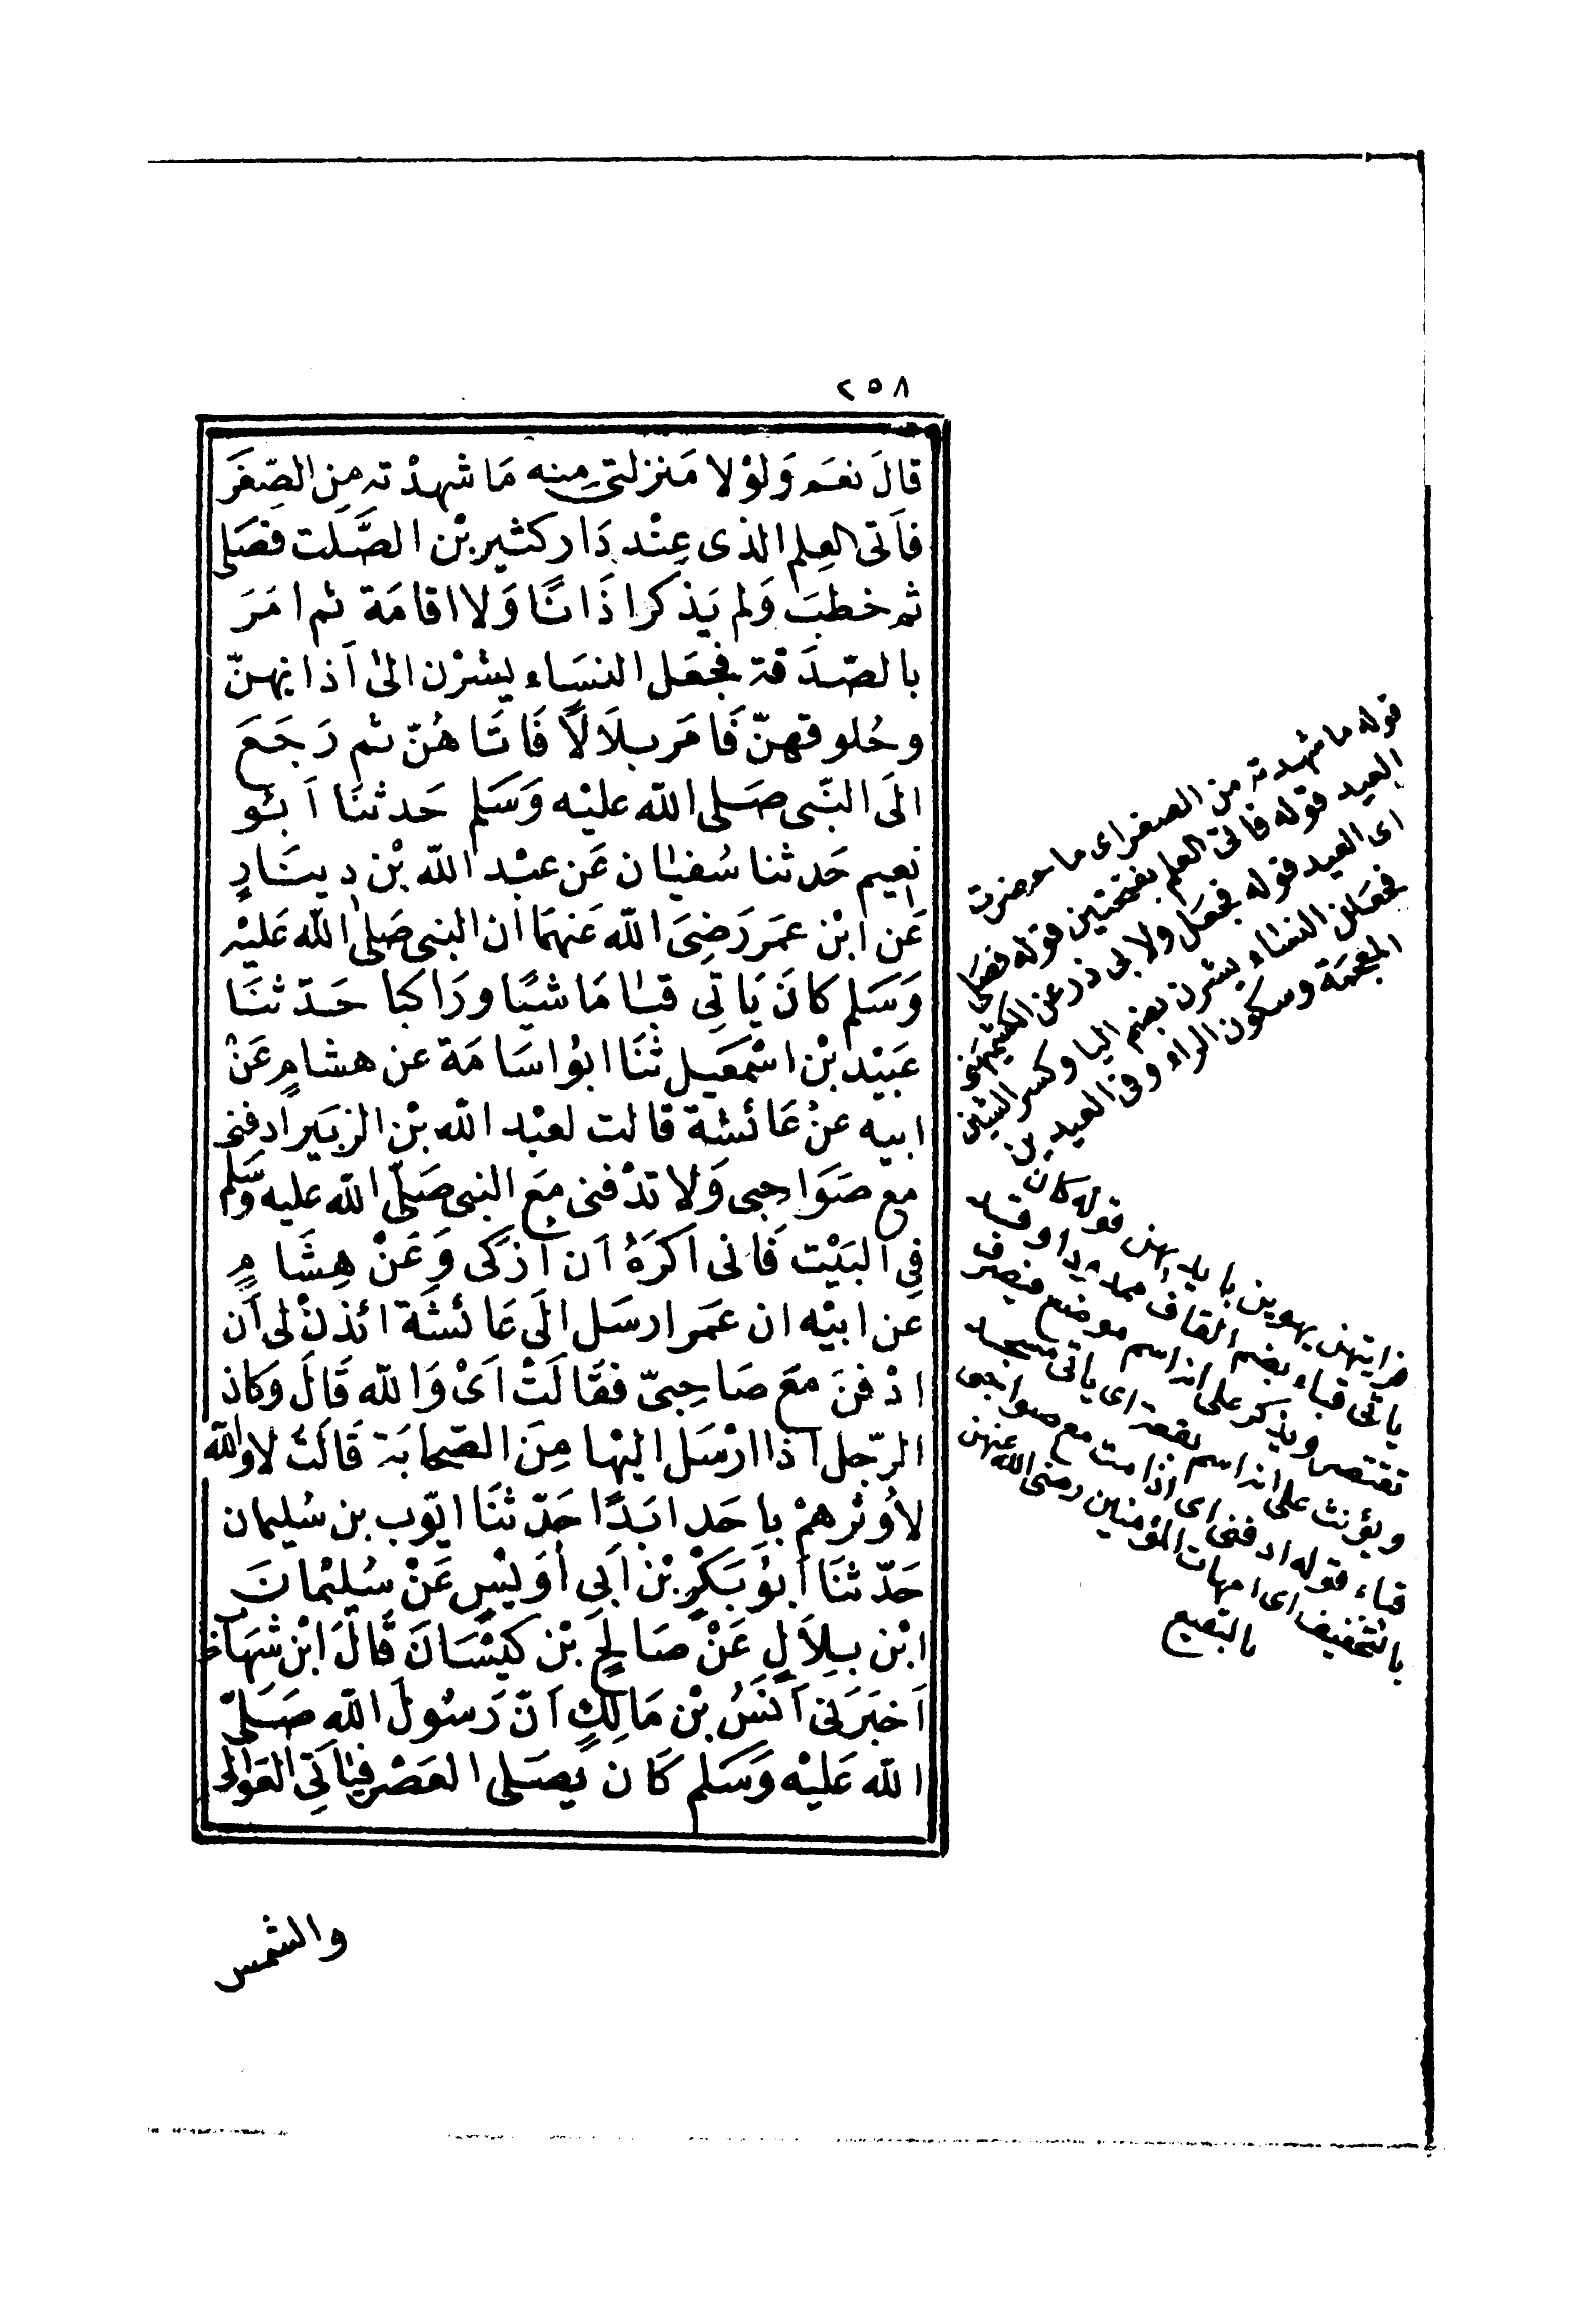 ٢٥٨
قالَ نعَم وَلوْلا مَنزلتي مِنه مَا شهدْته مِن الصِّغَر
فأتى العِلم الذى عِنْد دَار كثير بْن الصَّلت فصَلى
ثم خطبَ وَلم يَذكر اذَانًا وَلا اقامَة ثم امَرَ
بالصّدَقة فجعَل النسَاء يشرْن الىٰ آذانهنّ
وحُلوقهنّ فَامَر بلَالًا فَاتَاهُنّ ثم رَجَعَ
الَى النَّبى صَلى الله عليْه وَسَلم حَدثنَا اَبُو
نعيم حَدثنا سُفيٰان عَن عبْد الله بْن دِينَارٍ
عَن ابْن عمَر رَضِىَ الله عَنهمَا ان النبى صَلى الله عَليْه
وَسَلم كانَ يَاتِي قبٰا مَاشيًا ورَاكبا حَدّثنَا
عبَيْد بْن اسْمٰعيل ثنَا ابُو اسَامَة عن هشامٍ عَنْ
ابيه عنْ عَائشة قالت لعبْد الله بْن الزبَير ادفنى
مع صَوَاحِبى وَلا تدْفنى مَع النبى صَلّى الله عليه وَسَلم
فِي البَيْت فَانى اَكرَهُ اَن اُزكى وَعَنْ هِشَامٍ
عن ابيْه ان عمَر ارسَل الَى عَائشَة ائذنْ لى اَن
ادْفنَ مَعَ صَاحِبىّ فقَالَتْ اَىْ وَالله قَالَ وَكان
الرّجل اذا ارْسَل اليْهَا مِنَ الصّحابَة قَالَتْ لا والله
لاُوثرهمْ بِاحَد ابَدًا حَدّثنَا ايّوب بن سُليمان
حَدّثنَا اَبوُ بَكْرِ بْن اَبي اُوَيْسٍ عَنْ سُليْمانَ
ابْن بِلاَلٍ عَنْ صَالحِ بْن كيْسَانَ قَالَ ابْن شهَابٍ
اَخبَرَنى اَنَسُ بْن مَالِكٍ اَنّ رَسُولَ الله صَلىّ
الله عَليْه وَسَلم كَان يصَلى العَصْر فيَاتِى العَوَالى
قوله ما شهدته من الصغر اى ما حضرت
العيد قوله فاتى العلم بفتحتين قوله فصلى
اى العيد قوله فجعل ولابى ذر عن الكشميهنى
فجعلن النساء يشرن بضم اليا وكسر الشين
المعجمة وسكون الراء وفى العيدين
فرايتهن يهوين بايديهن قوله كان
ياتى قباء بضم القاف ممدودا وقد
تقتصر ويذكر على انه اسم موضع فيصرف
ويؤنث على انه اسم بقعة اى ياتى مسجد
قباء قوله ادفنى اى اذا مت مع صواحبى
بالتخفيف اى امهات المؤمنين رضى الله عنهن
بالبقيع
والشمس